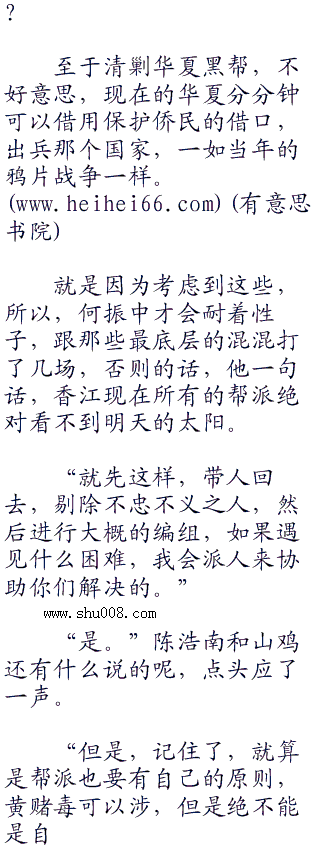 ?
至于清剿华夏黑帮，不
好意思，现在的华夏分分钟
可以借用保护侨民的借口，
出兵那个国家，一如当年的
鸦片战争一样。
(www.heihei66.com)(有意思
书院)
就是因为考虑到这些，
所以，何振中才会耐着性
子，跟那些最底层的混混打
了几场，否则的话，他一句
话，香江现在所有的帮派绝
对看不到明天的太阳。
“就先这样，带人回
去，剔除不忠不义之人，然
后进行大概的编组，如果遇
见什么困难，我会派人来协
助你们解决的。”
www.shu008.com
“是。”陈浩南和山鸡
还有什么说的呢，点头应了
一声。
“但是，记住了，就算
是帮派也要有自己的原则，
黄赌毒可以涉，但是绝不能
是自